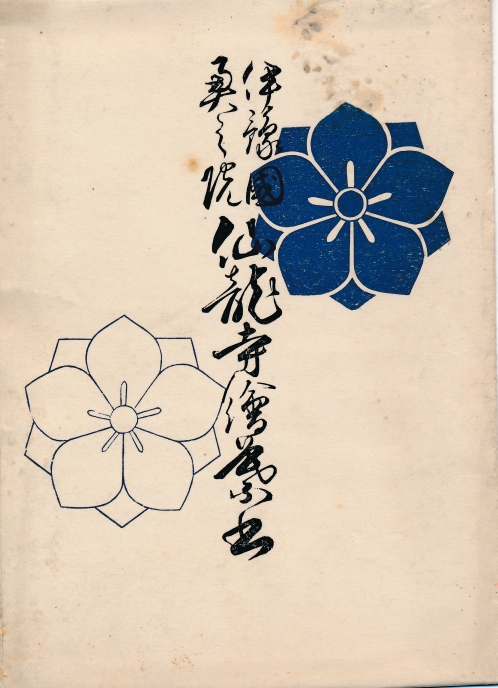 伊豫國
奥之院
仙龍寺繪葉書